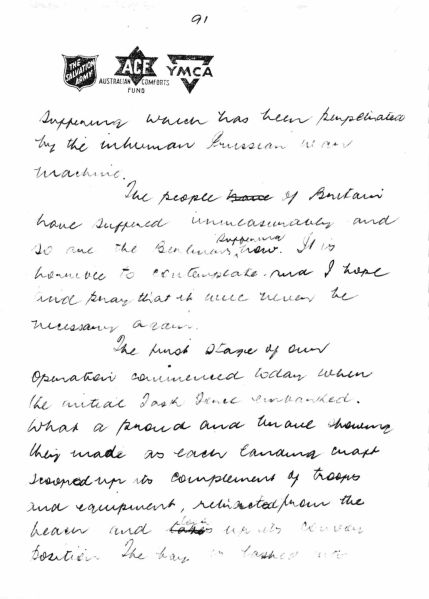 91
THE SALVATION ARMY
ACF
AUSTRALIAN COMFORTS FUND
YMCA
suffering which has been perpetrated
by the inhuman Prussian war
machine.
The people have of Britain
have suffered immeasurably and
so are the Berliners suffering now. It is
horrible to contemplate and I hope
and pray that it will never be
necessary again.
The first stage of our
operation commenced today when
the initial Task Force embarked.
What a proud and brave showing
they made as each landing craft
scooped up its complement of troops
and equipment, retracted from the
beach and up its convoy
position. The bay is